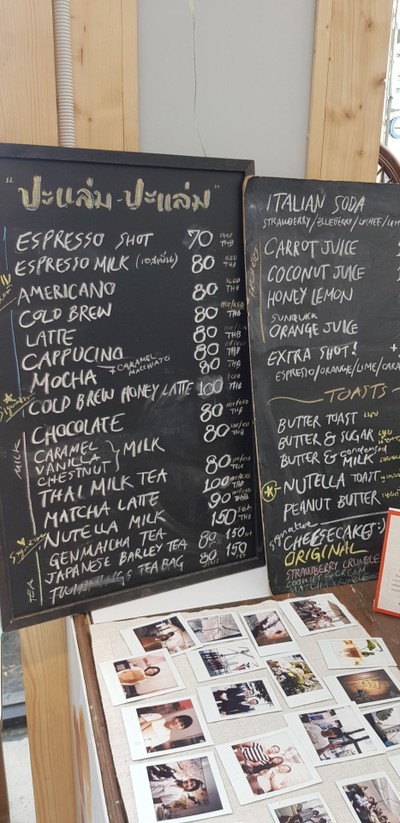 "ปะแล่ม-ปะแล่ม"
ESPRESSO SHOT 70 THB
ESPRESSO MILK 80 ICED THB
AMERICANO 80 ICED THB
COLD BREW 80
LATTE 80
CAPPUCINO 80
MOCHA CARAMEL MACCHIATO 90
COLD BREW HONEY LATTE 100
CHOCOLATE 80
MILK
CARAMEL
VANILLA
CHESTNUT
} MILK 80
THAI MILK TEA 100
MATCHA LATTE 90
NUTELLA MILK 150
TEA
GENMAICHA TEA 80 150
JAPANESE BARLEY TEA 80 150
TEA BAG 80
ITALIAN SODA
STRAWBERRY/BLUEBERRY/LYCHEE/
CARROT JUICE
COCONUT JUICE
HONEY LEMON
SUNQUICK
ORANGE JUICE
EXTRA SHOT!
ESPRESSO/ORANGE/LIME/
TOASTS
BUTTER TOAST
BUTTER & SUGAR
BUTTER & condensed MILK
NUTELLA TOAST
PEANUT BUTTER
signature
CHEESECAKE :)
ORIGINAL
STRAWBERRY CRUMBLE
COOKIES & CREAM
MATCHA CRUMBLE